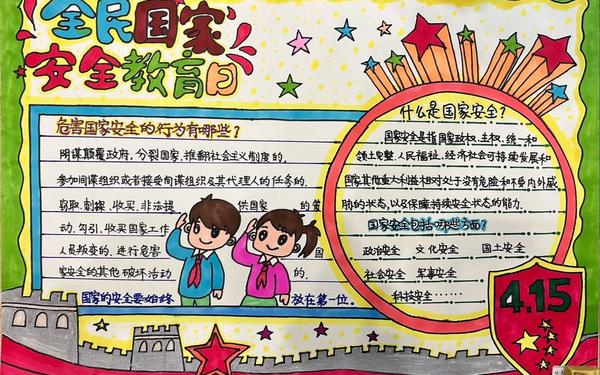 全民国家
安全教育日
危害国家安全的行为有哪些？
阴谋颠覆政府，分裂国家，推翻社会主义制度的，
参加间谍组织或者接受间谍组织及其代理人的任务的，
窃取、刺探、收买、非法提供国家的
动，勾引、收买国家工作国
人员叛变的，进行危害
家安全的其他破坏活动的，
国家的安全要始终放在第一位。
什么是国家安全？
国家安全是指国家政权、主权、统一和
领土完整、人民福祉、经济社会可持续发展和
国家其他重大利益相对处于没有危险和不受内外威
胁的状态，以及保障持续安全状态的能力。
国家安全包括哪些方面？
政治安全 文化安全 国土安全
社会安全 军事安全
科技安全……
4.15